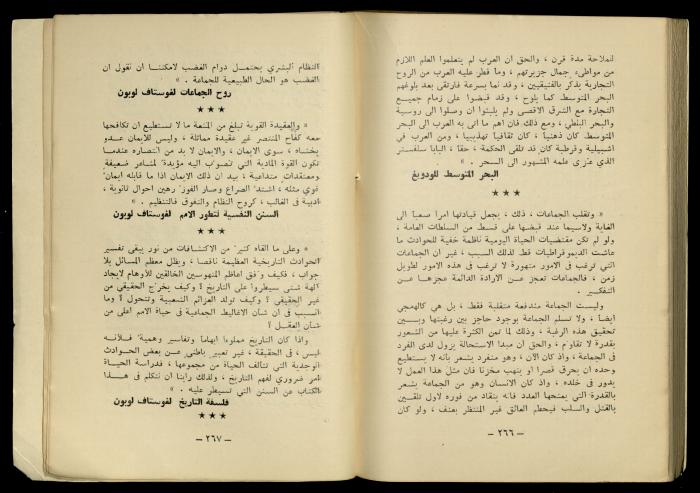 للملاحة مدة قرن ، والحق ان العرب لم يتعلموا العلم اللازم
من مواطىء جمال جزيرتهم ، وما فطر عليه العرب من الروح
التجارية يذكر بالفنيقيين ، وقد نما بسرعة فارتقى بعد بلوغهم
البحر المتوسط كما يلوح ، وقد قبضوا على زمام جميع
التجارة مع الشرق الاقصى ولم يلبثوا ان وصلوا الى روسية
والبحر البلطي ، ومع ذلك فان اهم ما اتى به العرب الى البحر
المتوسط كان ذهنيا ، كان ثقافيا تهذيبيا ، ومن العرب في
اشبيلية وقرطبة كان قد تلقى الحكمة ، حقا ، البابا سلفستر
الذي عزى علمه المشهور الى السحر . »
البحر المتوسط للودويغ
★ ★ ★
« وتقلب الجماعات ، ذلك ، يجعل قيادتها امرا صعبا الى
الغاية ولاسيما عند قبضها على قسط من السلطات العامة ،
ولو لم تكن مقتضيات الحياة اليومية ناظمة خفية للحوادث ما
عاشت الديموقراطيات قط لذلك السبب ، غير ان الجماعات
التي ترغب في الامور متهورة لا ترغب في هذه الامور لطويل
زمن ، فالجماعات تعجز عن الارادة الدائمة عجزها عن
التفكير .
وليست الجماعة مندفعة متقلبة فقط ، بل هي كالهمجي
ايضا ، ولا تسلم الجماعة بوجود حاجز بين رغبتها وبين
تحقيق هذه الرغبة ، وذلك لما تمن الكثرة عليها من الشعور
بقدرة لا تقاوم ، والحق ان مبدا الاستحالة يزول لدى الفرد
في الجماعة ، واذ كان الآن ، وهو منفرد يشعر بانه لا يستطيع
وحده ان يحرق قصرا او ينهب مخزنا فان مثل هذا العمل لا
يدور في خلده ، واذ كان الانسان وهو من الجماعة يشعر
بالقدرة التي يمنحها العدد فانه ينقاد من فوره لاول تلقين
بالقتل والسلب فيحطم العائق غير المنتظر بعنف ، ولو كان
— ٢٦٦ —
النظام البشري يحتمل دوام الغضب لامكننا ان نقول ان
الغضب هو الحال الطبيعية للجماعة . »
روح الجماعات لغوستاف لوبون
★ ★ ★
« والعقيدة القوية تبلغ من المنعة ما لا تستطيع ان تكافحها
معه كفاح المنتصر غير عقيدة مماثلة ، وليس للايمان عدو
يخشاه ، سوى الايمان ، والايمان لا بد من انتصاره عندما
تكون القوة المادية التي تصوب اليه مؤيدة لمشاعر ضعيفة
ومعتقدات متداعية ، بيد ان ذلك الايمان اذا ما قابله ايمان
قوي مثله ، اشتد الصراع وصار الفوز رهين احوال ثانوية ،
ادبية في الغالب ، كروح النظام والتفوق فالتنظيم . »
السنن النفسية لتطور الامم لغوستاف لوبون
★ ★ ★
« وعلى ما القاه كثير من الاكتشافات من نور يبقى تفسير
الحوادث التاريخية العظيمة ناقصا ، ويظل معظم المسائل بلا
جواب ، فكيف وفق اعاظم المتهوسين الخالقين للأوهام لايجاد
آلهة شتى سيطروا على التاريخ ؟ وكيف يخرج الحقيقي من
غير الحقيقي ؟ وكيف تولد العزائم الشعبية وتتحول ؟ وما
السبب في ان شان الاغاليط الجماعية في حياة الامم اعلى من
شان العقل ؟
واذا كان التاريخ مملوءا ابهاما وتفاسير وهمية فلانه
ليس ، في الحقيقة ، غير تعبير باطني عن بعض الحوادث
الوجدية التي تتالف الحياة من مجموعها ، فدراسة الحياة
امر ضروري لفهم التاريخ ، ولذلك راينا ان نتكلم في هذا
الكتاب عن السنن التي تسيطر عليه . »
فلسفة التاريخ لغوستاف لوبون
★ ★ ★
— ٢٦٧ —